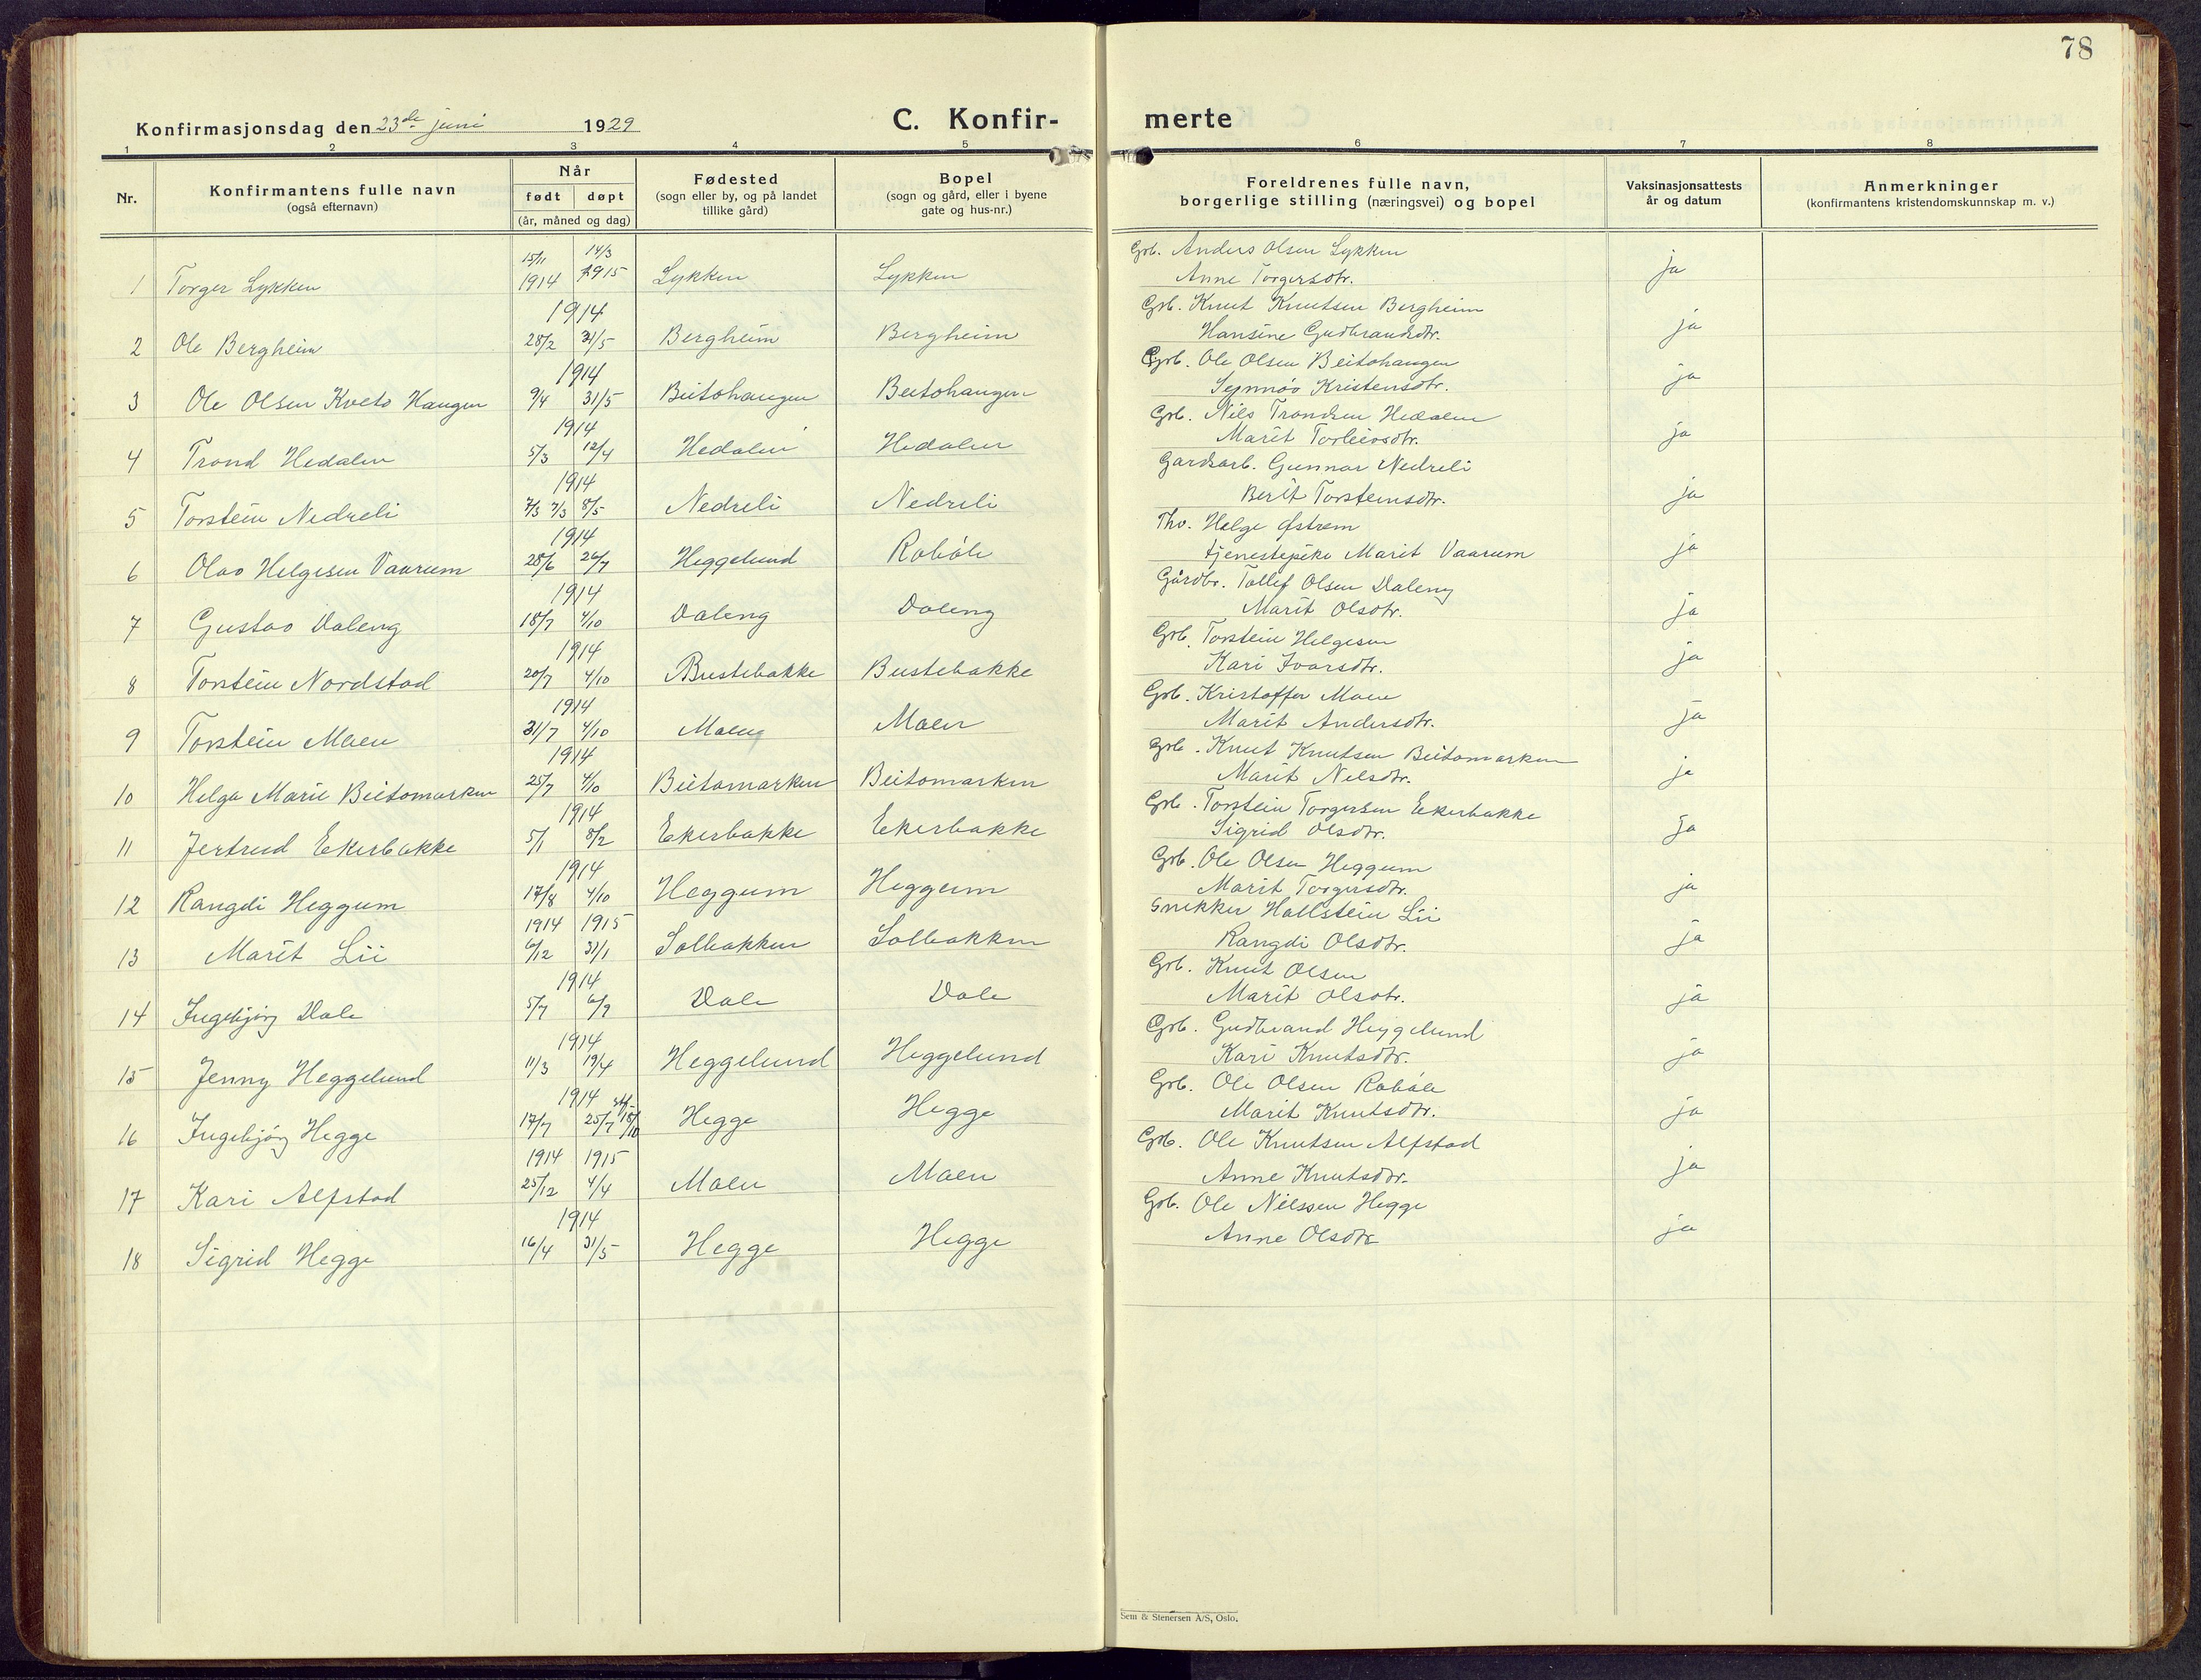 78
Konfirmasjonsdag den 23de juni 1929
C. Konfir-
merte
1 2 3 4 5 6 7 8
Nr.
Konfirmantens fulle navn
(også efternavn)
Når
født døpt
(år, måned og dag)
Fødested
(sogn eller by, og på landet
tillike gård)
Bopel
(sogn og gård, eller i byene
gate og hus-nr.)
Foreldrenes fulle navn,
borgerlige stilling (næringsvei) og bopel
Vaksinasjonsattests
år og datum
Anmerkninger
(konfirmantens kristendomskunnskap m. v.)
15/11 14/3 Grb. Anders Olsen Lykken
1 Torger Lykken 1914 1915 Lykken Lykken Anne Torgersdtr. ja
1914 Grb. Knut Knutsen Bergheim
2 Ole Bergheim 28/2 31/5 Bergheim Bergheim Hansine Gudbrandsdtr. ja
1914 Grb. Ole Olsen Beitohaugen
3 Ole Olsen Kveto Haugen 9/4 31/5 Beitohaugen Beitohaugen Synnøv Kristensdtr. ja
1914 Grb. Nils Trondsen Hedalen
4 Trond Hedalen 5/3 12/4 Hedalen Hedalen Marit Torleivsdtr. ja
1914 Gardsarb. Gunnar Nedreli
5 Torstein Nedreli 7/3 7/3 8/5 Nedreli Nedreli Berit Torsteinsdtr. ja
1914 Thv. Helge Østrem
6 Olav Helgesen Vaarum 28/6 26/7 Heggelund Robøle tjenestepike Marit Vaarum ja
1914 Gårdbr. Tollef Olsen Daleng
7 Gustav Daleng 18/7 4/10 Daleng Daleng Marit Olsdtr. ja
1914 Grb. Torstein Helgesen
8 Torstein Nordstad 20/7 4/10 Bustebakke Bustebakke Kari Ivarsdtr. ja
1914 Grb. Kristoffer Moen
9 Torstein Moen 31/7 4/10 Moen Moen Marit Andersdtr. ja
1914 Grb. Knut Knutsen Beitomarken
10 Helga Marie Beitomarken 25/7 4/10 Beitomarken Beitomarken Marit Nelsdtr. ja
1914 Grb. Torstein Torgersen Ekerbakke
11 Jertrud Ekerbakke 5/1 8/2 Ekerbakke Ekerbakke Sigrid Olsdtr. ja
1914 Grb. Ole Olsen Heggum
12 Rangdi Heggum 17/8 4/10 Heggum Heggum Marit Torgersdtr. ja
1914 1915 Snekker Hallstein Lii
13 Marit Lii 6/12 31/1 Solbakken Solbakken Rangdi Olsdtr. ja
1914 Grb. Knut Olsen
14 Ingebjørg Dale 5/7 6/9 Dale Dale Marit Olsdtr. ja
1914 Grb. Gudbrand Heggelund
15 Jenny Heggelund 11/3 19/4 Heggelund Heggelund Kari Knutsdtr. ja
1914 Grb. Ole Olsen Robøle
16 Ingebjørg Hegge 17/7 25/7 18/10 Hegge Hegge Marit Knutsdtr. ja
1914 1915 Grb. Ole Knutsen Alfstad
17 Kari Alfstad 25/12 4/4 Moen Moen Anne Knutsdtr. ja
1914 Grb. Ole Nilssen Hegge
18 Sigrid Hegge 16/4 31/5 Hegge Hegge Anne Olsdtr. ja
Sem & Stenersen A/S, Oslo.